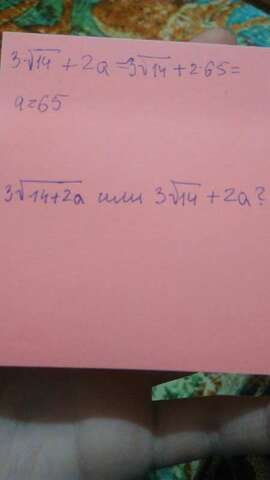 3·√14 + 2a = 3√14 + 2·65 =
a=65
3√14+2a или 3√14 + 2a?